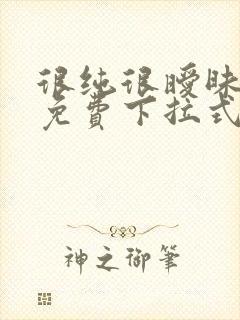 很纯很暧昧
免费下拉式
神之御筆